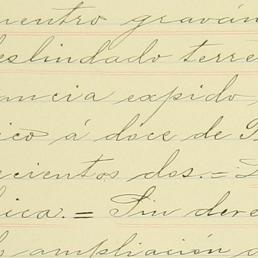 cuentro graván
deslindado terre
ancia expido
ico á doce de
ecientos dos.=
lica.= Sin dere
ampliación